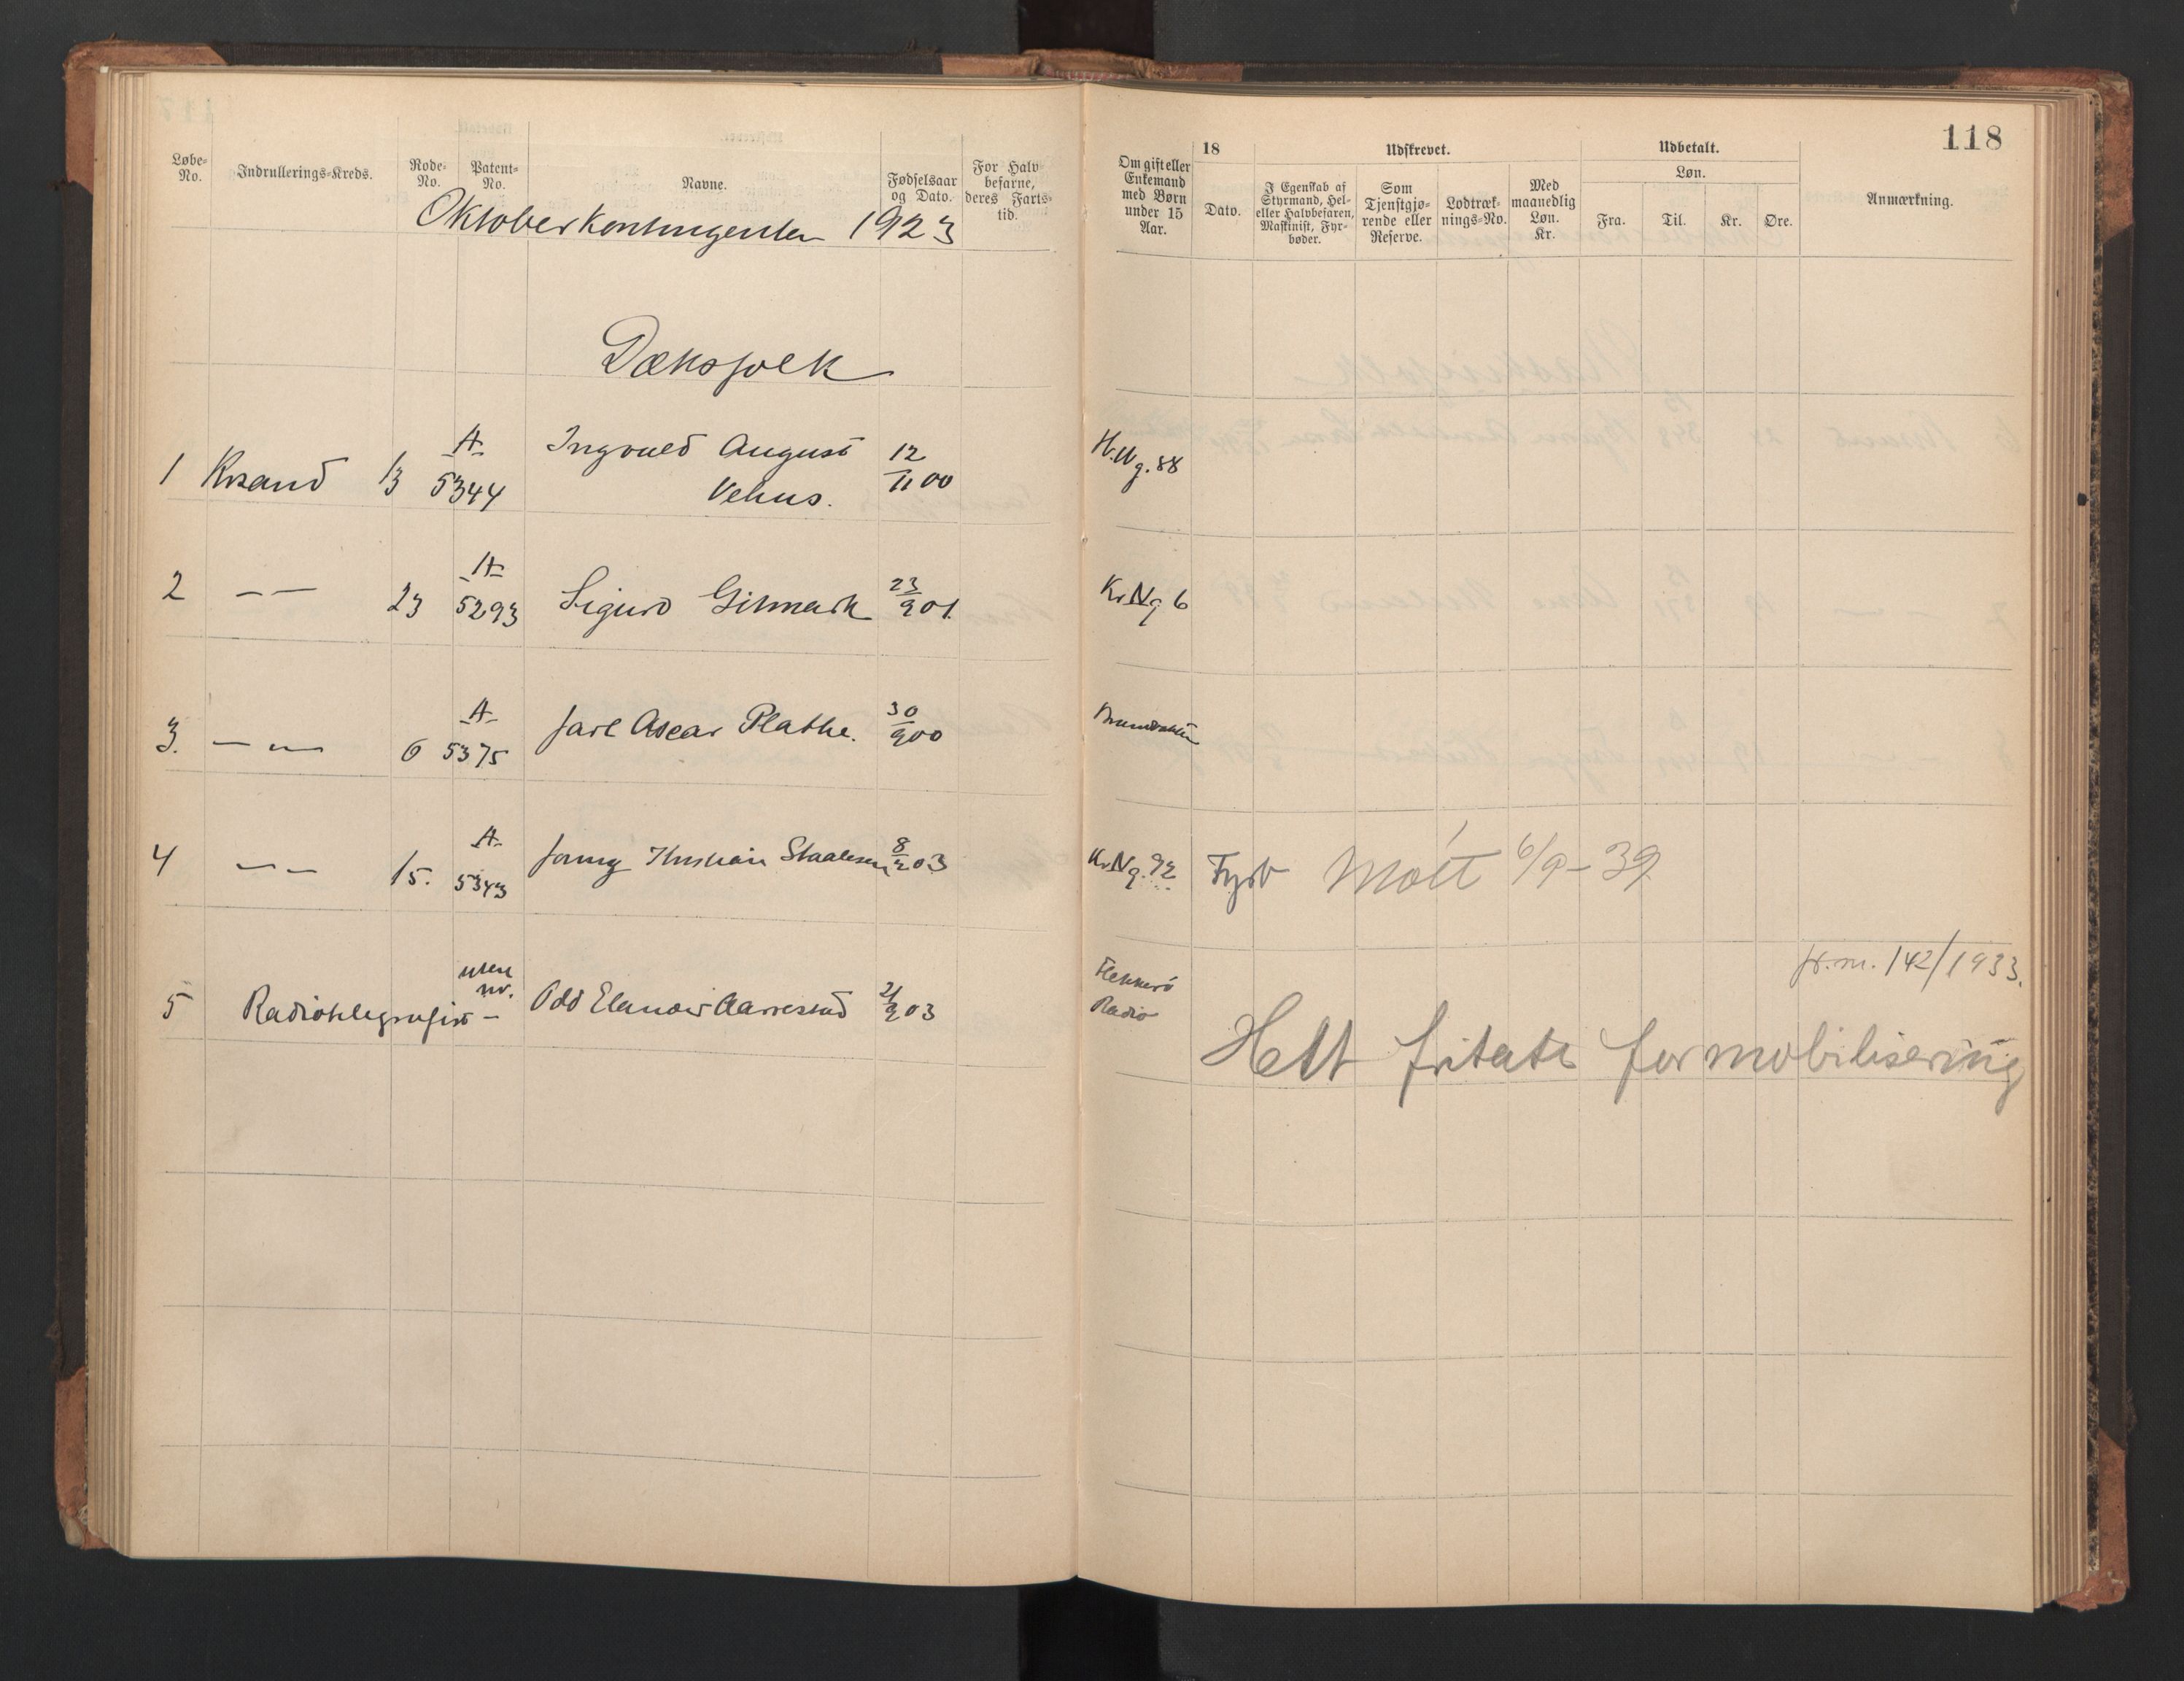 118
Løbe-No.
Indrullerings-Kreds.
Rode-No.
Patent-No.
Navne.
Fødselsaar og Dato.
For Halvbefarne, deres Farts-tid.
Om gift eller Enkemand med Børn under 15 Aar.
18
Dato.
Udskrevet.
I Egenskab af Styrmand, Hel- eller Halvbefaren, Maskinist, Fyrbøder.
Som Tjenstgjørende eller Reserve.
Lodtræknings-No.
Med maanedlig Løn. Kr.
Udbetalt.
Løn.
Fra.
Til.
Kr.
Øre.
Anmærkning.
Oktoberkontingenten 1923
Dæksfolk
1 Krsand 13 A 5344 Ingvald August Vehus. 12/11 00
2 — — 23 A 5293 Sigurd Gitmark 23/9 01. Kr.N.g 6
3. — — 6 A 5375 Jarl Oscar Plathe. 30/9 00
4 — — 15. A 5343 Staalesen 8/2 03 Kr.N.g. 92 Fyrb Møtt 6/9-39
5 Radiotelegrafist — uten nr. Odd Aarrestad 21/9 03 Flekkerö Radio
142/1933.
Helt fritatt for mobilisering